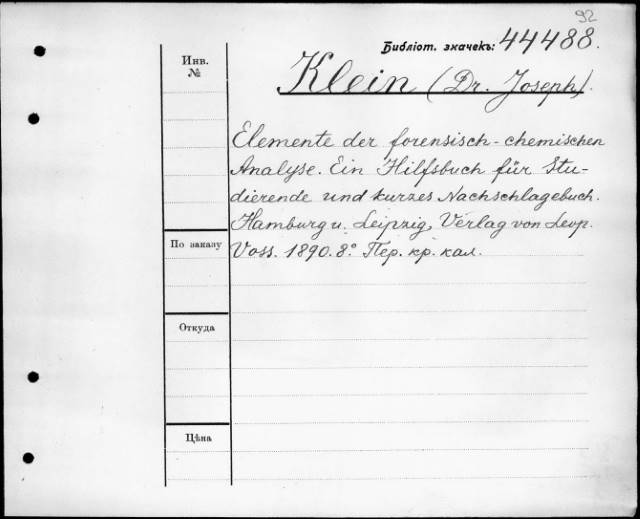 92
Библіот. значекъ: 44488.
Инв.
№
Klein (Dr. Joseph).
Elemente der forensisch-chemischen
Analyse. Ein Hilfsbuch für Stu-
dierende und kurzes Nachschlagebuch.
Hamburg u. Leipzig, Verlag von Leop.
По заказу
Voss. 1890. 8° Пер. кр. кал.
Откуда
Цѣна